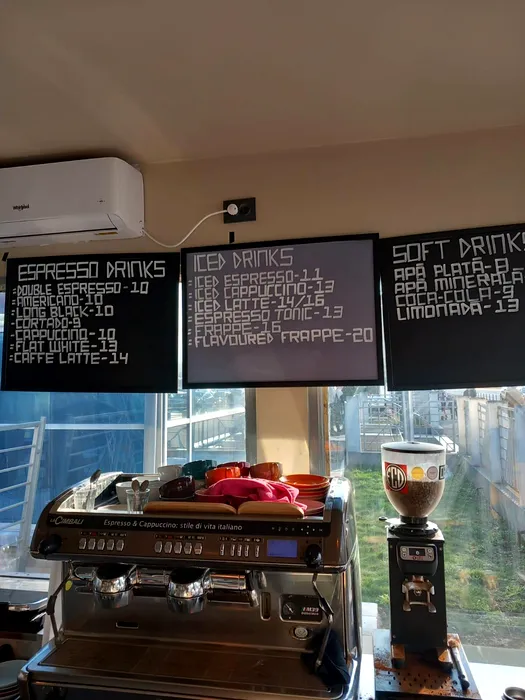 Whirlpool
ESPRESSO DRINKS
DOUBLE ESPRESSO-10
AMERICANO-10
LONG BLACK-10
CORTADO-9
CAPPUCCINO-10
FLAT WHITE-13
CAFFE LATTE-14
ICED DRINKS
ICED ESPRESSO-11
ICED CAPPUCCINO-13
ICED LATTE-14/16
ESPRESSO TONIC-13
FRAPPE-16
FLAVOURED FRAPPE-20
SOFT DRINKS
APĂ PLATĂ-8
APĂ MINERALĂ
COCA-COLA-9
LIMONADA-13
LA CIMBALI
Espresso & Cappuccino: stile di vita italiano